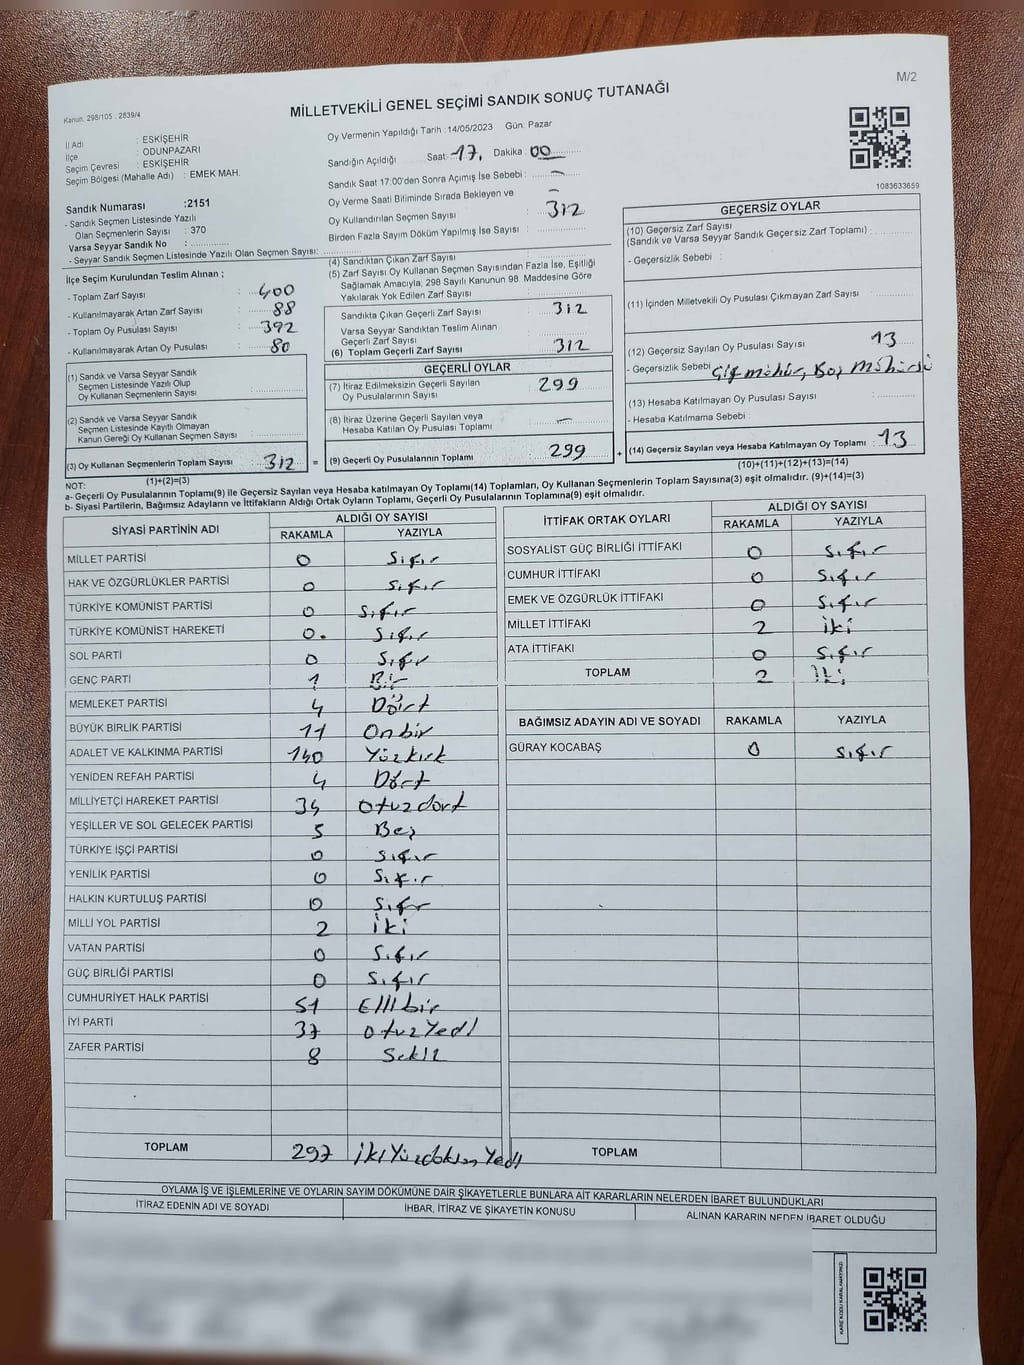 M/2
MİLLETVEKİLİ GENEL SEÇİMİ SANDIK SONUÇ TUTANAĞI
Kanun. 298/105 . 2839/4
İl Adı : ESKİŞEHİR
İlçe : ODUNPAZARI
Seçim Çevresi : ESKİŞEHİR
Seçim Bölgesi (Mahalle Adı) : EMEK MAH.
Sandık Numarası :2151
- Sandık Seçmen Listesinde Yazılı
Olan Seçmenlerin Sayısı : 370
Varsa Seyyar Sandık No :
- Seyyar Sandık Seçmen Listesinde Yazılı Olan Seçmen Sayısı:
Oy Vermenin Yapıldığı Tarih :14/05/2023 Gün: Pazar
Sandığın Açıldığı Saat: 17. Dakika 00
Sandık Saat 17:00'den Sonra Açımış İse Sebebi : —
Oy Verme Saati Bitiminde Sırada Bekleyen ve
Oy Kullandırılan Seçmen Sayısı : 312
Birden Fazla Sayım Döküm Yapılmış İse Sayısı :
1083633659
İlçe Seçim Kurulundan Teslim Alınan ;
- Toplam Zarf Sayısı : 400
- Kullanılmayarak Artan Zarf Sayısı : 88
- Toplam Oy Pusulası Sayısı : 392
- Kullanılmayarak Artan Oy Pusulası : 80
(1) Sandık ve Varsa Seyyar Sandık
Seçmen Listesinde Yazılı Olup
Oy Kullanan Seçmenlerin Sayısı :
(2) Sandık ve Varsa Seyyar Sandık
Seçmen Listesinde Kayıtlı Olmayan
Kanun Gereği Oy Kullanan Seçmen Sayısı :
(3) Oy Kullanan Seçmenlerin Toplam Sayısı 312 =
(1)+(2)=(3)
(4) Sandıktan Çıkan Zarf Sayısı :
(5) Zarf Sayısı Oy Kullanan Seçmen Sayısından Fazla İse, Eşitliği
Sağlamak Amacıyla, 298 Sayılı Kanunun 98. Maddesine Göre
Yakılarak Yok Edilen Zarf Sayısı :
Sandıkta Çıkan Geçerli Zarf Sayısı : 312
Varsa Seyyar Sandıktan Teslim Alınan
Geçerli Zarf Sayısı :
(6) Toplam Geçerli Zarf Sayısı : 312
GEÇERLİ OYLAR
(7) İtiraz Edilmeksizin Geçerli Sayılan
Oy Pusulalarının Sayısı : 299
(8) İtiraz Üzerine Geçerli Sayılan veya
Hesaba Katılan Oy Pusulası Toplamı : —
(9) Geçerli Oy Pusulalarının Toplamı : 299 +
GEÇERSİZ OYLAR
(10) Geçersiz Zarf Sayısı
(Sandık ve Varsa Seyyar Sandık Geçersiz Zarf Toplamı) :
- Geçersizlik Sebebi :
(11) İçinden Milletvekili Oy Pusulası Çıkmayan Zarf Sayısı
(12) Geçersiz Sayılan Oy Pusulası Sayısı : 13
- Geçersizlik Sebebi Çift mühür, Boş Mühürsü
(13) Hesaba Katılmayan Oy Pusulası Sayısı :
- Hesaba Katılmama Sebebi :
(14) Geçersiz Sayılan veya Hesaba Katılmayan Oy Toplamı : 13
(10)+(11)+(12)+(13)=(14)
NOT:
a- Geçerli Oy Pusulalarının Toplamı(9) ile Geçersiz Sayılan veya Hesaba Katılmayan Oy Toplamı(14) Toplamları, Oy Kullanan Seçmenlerin Toplam Sayısına(3) eşit olmalıdır. (9)+(14)=(3)
b- Siyasi Partilerin, Bağımsız Adayların ve İttifakların Aldığı Ortak Oyların Toplamı, Geçerli Oy Pusulalarının Toplamına(9) eşit olmalıdır.
SİYASİ PARTİNİN ADI ALDIĞI OY SAYISI
RAKAMLA YAZIYLA
MİLLET PARTİSİ 0 Sıfır
HAK VE ÖZGÜRLÜKLER PARTİSİ 0 Sıfır
TÜRKİYE KOMÜNİST PARTİSİ 0 Sıfır
TÜRKİYE KOMÜNİST HAREKETİ 0. Sıfır
SOL PARTİ 0 Sıfır
GENÇ PARTİ 1 Bir
MEMLEKET PARTİSİ 4 Dört
BÜYÜK BİRLİK PARTİSİ 11 Onbir
ADALET VE KALKINMA PARTİSİ 140 Yüzkırk
YENİDEN REFAH PARTİSİ 4 Dört
MİLLİYETÇİ HAREKET PARTİSİ 34 Otuzdört
YEŞİLLER VE SOL GELECEK PARTİSİ 5 Beş
TÜRKİYE İŞÇİ PARTİSİ 0 Sıfır
YENİLİK PARTİSİ 0 Sıfır
HALKIN KURTULUŞ PARTİSİ 0 Sıfır
MİLLİ YOL PARTİSİ 2 İki
VATAN PARTİSİ 0 Sıfır
GÜÇ BİRLİĞİ PARTİSİ 0 Sıfır
CUMHURİYET HALK PARTİSİ 51 Ellibir
İYİ PARTİ 37 Otuzyedi
ZAFER PARTİSİ 8 Sekiz
TOPLAM 297 İkiYüzdoksanYedi
İTTİFAK ORTAK OYLARI ALDIĞI OY SAYISI
RAKAMLA YAZIYLA
SOSYALİST GÜÇ BİRLİĞİ İTTİFAKI 0 Sıfır
CUMHUR İTTİFAKI 0 Sıfır
EMEK VE ÖZGÜRLÜK İTTİFAKI 0 Sıfır
MİLLET İTTİFAKI 2 İki
ATA İTTİFAKI 0 Sıfır
TOPLAM 2 İki
BAĞIMSIZ ADAYIN ADI VE SOYADI RAKAMLA YAZIYLA
GÜRAY KOCABAŞ 0 Sıfır
TOPLAM
OYLAMA İŞ VE İŞLEMLERİNE VE OYLARIN SAYIM DÖKÜMÜNE DAİR ŞİKAYETLERLE BUNLARA AİT KARARLARIN NELERDEN İBARET BULUNDUKLARI
İTİRAZ EDENİN ADI VE SOYADI İHBAR, İTİRAZ VE ŞİKAYETİN KONUSU ALINAN KARARIN NEDEN İBARET OLDUĞU
KARE KODU KARALAMAYINIZ!